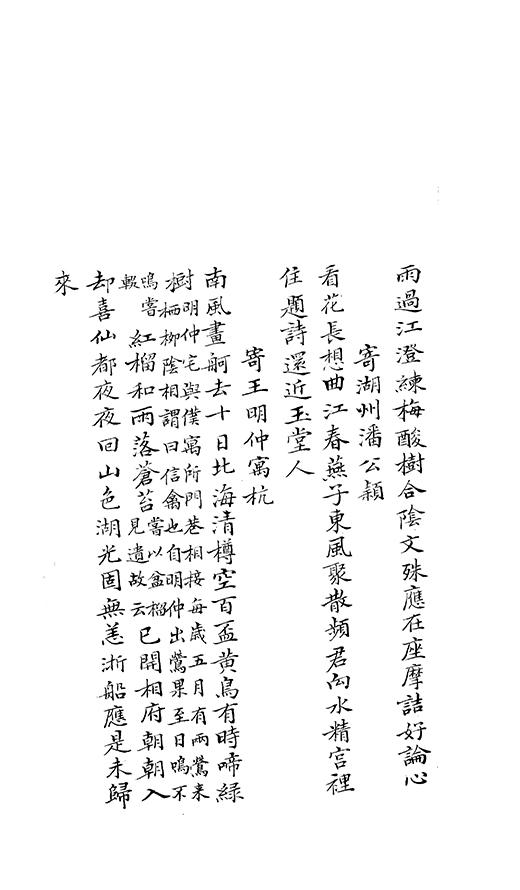 雨過江澄練梅酸樹合陰文殊應在座摩詰好論心
寄湖州潘公穎
看花長想曲江春燕子東風聚散頻君向水精宮裡
住題詩還近玉堂人
寄王明仲寓杭
南風畫舸去十日北海清樽空百盃黃鳥有時啼綠
樹明仲宅與僕寓所門巷相接每歲五月有兩鶯来
栖柳陰相謂曰信禽也自明仲出鶯果至日鳴不
鳴嘗
輟
紅榴和雨落蒼苔嘗以盆榴見遺故云已開相府朝朝入
却喜仙都夜夜回山色湖光固無恙浙船應是未歸
來